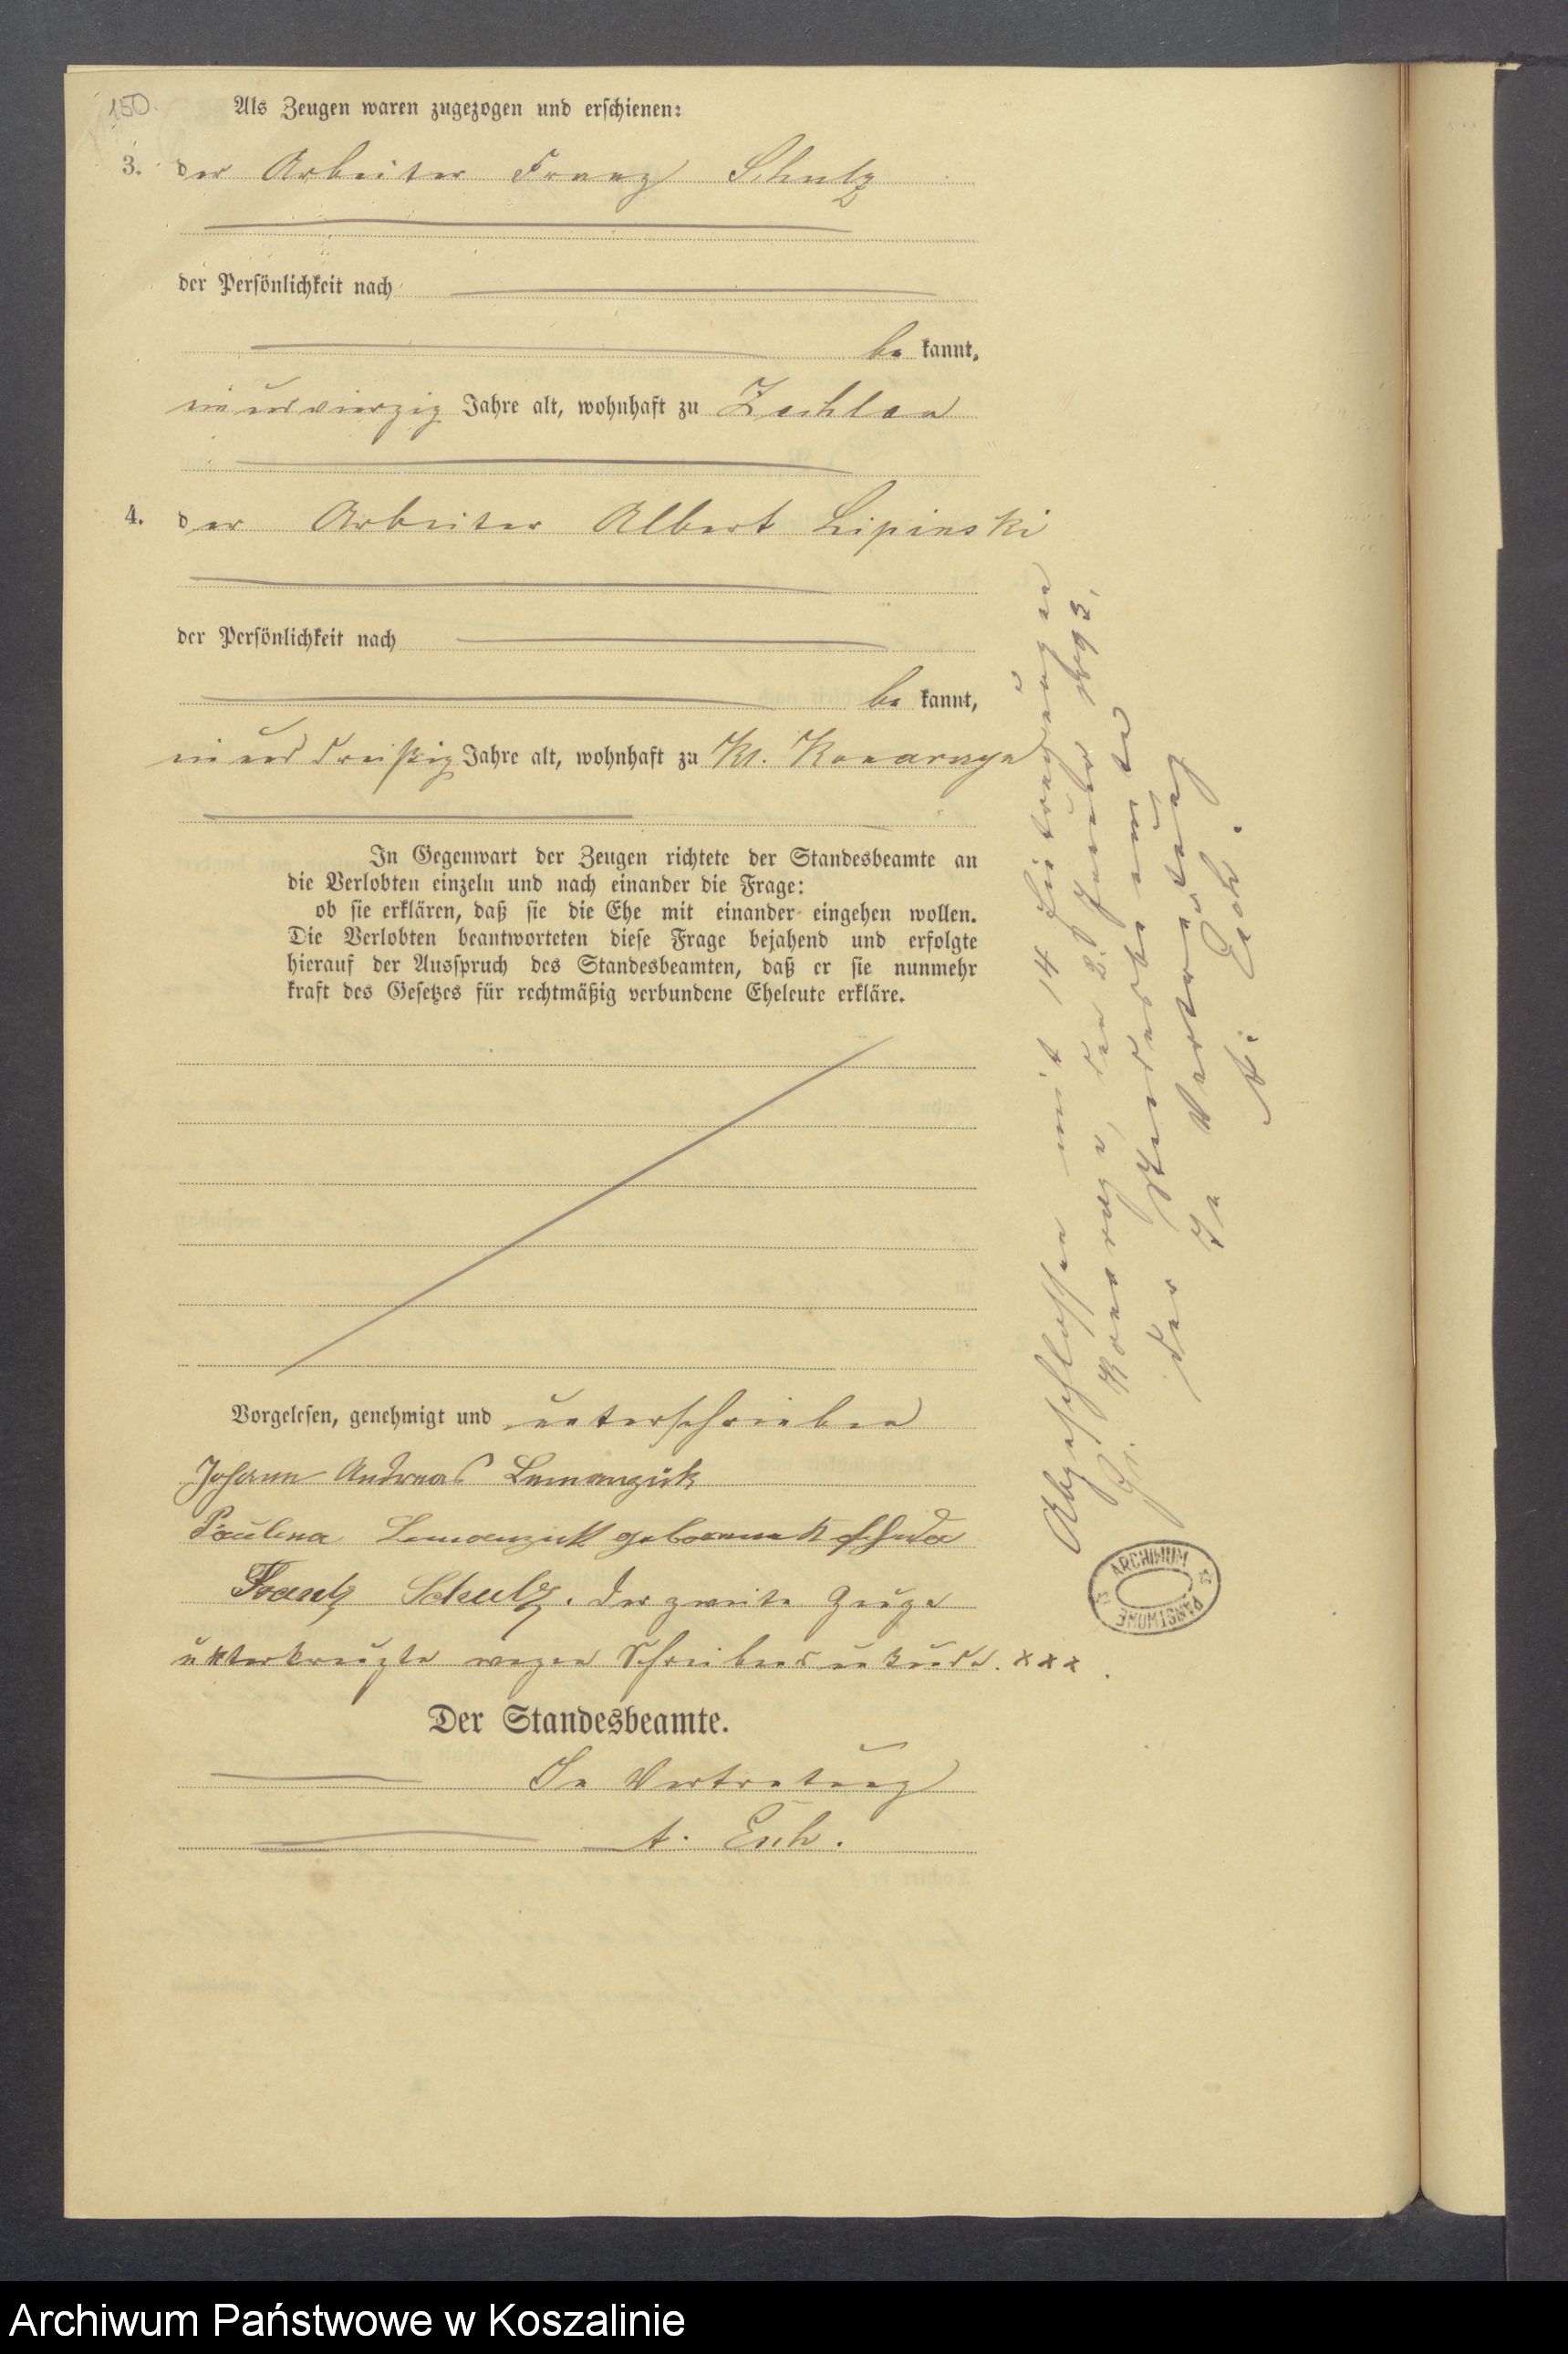 150.
Als Zeugen waren zugezogen und erschienen:
3. der Arbeiter Franz Schulz
der Persönlichkeit nach
be kannt,
einundvierzig Jahre alt, wohnhaft zu Zechlau
4. der Arbeiter Albert Lipinski
der Persönlichkeit nach
be kannt,
einunddreißig Jahre alt, wohnhaft zu Kl. Konarczyn
In Gegenwart der Zeugen richtete der Standesbeamte an
die Verlobten einzeln und nach einander die Frage:
ob sie erklären, daß sie die Ehe mit einander eingehen wollen.
Die Verlobten beantworteten diese Frage bejahend und erfolgte
hierauf der Ausspruch des Standesbeamten, daß er sie nunmehr
kraft des Gesetzes für rechtmäßig verbundene Eheleute erkläre.
Vorgelesen, genehmigt und unterschrieben
Johann Andreas Lemanzück
Paulina Lemanzück geborene
Frantz Schulz. Der zweite Zeuge
unterkreuzte wegen Schreibensunkunde. xxx.
Der Standesbeamte.
In Vertretung
A. Esch.
Abgeschlossen mit 14 Eintragungen
Gr. den 2. Januar
der Standesbeamte
In Vertretung
A. Esch.
ARCHIWUM
PAŃSTWOWE
Archiwum Państwowe w Koszalinie